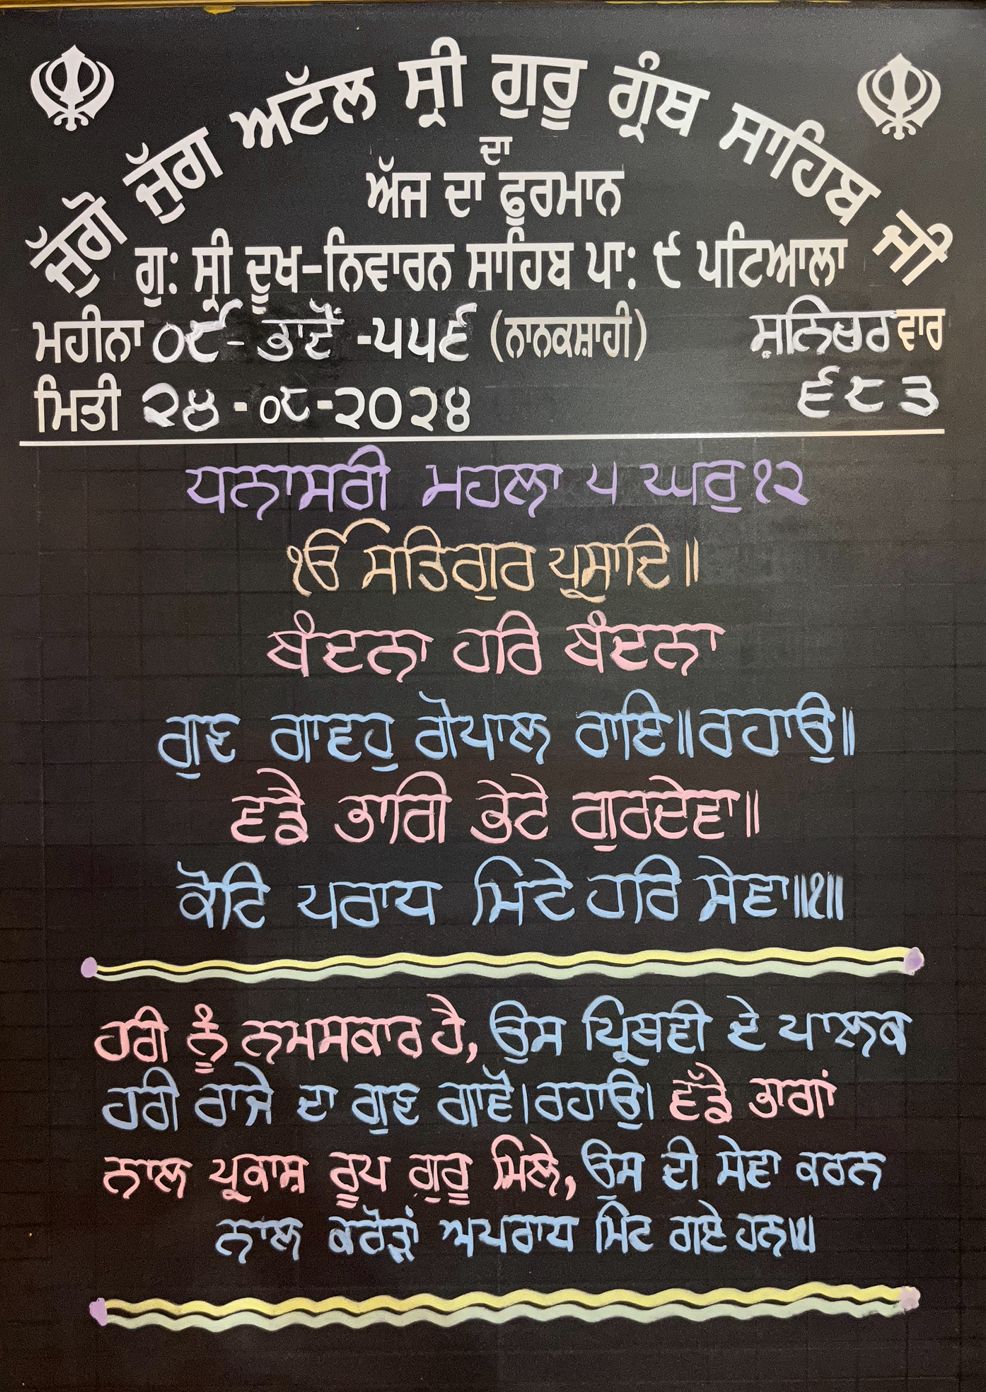 ਜੁੱਗੋ ਜੁੱਗ ਅਟੱਲ ਸ੍ਰੀ ਗੁਰੂ ਗ੍ਰੰਥ ਸਾਹਿਬ ਜੀ
ਦਾ
ਅੱਜ ਦਾ ਫੂਰਮਾਨ
ਗੁ: ਸ੍ਰੀ ਦੂਖ-ਨਿਵਾਰਨ ਸਾਹਿਬ ਪਾ: ੯ ਪਟਿਆਲਾ
ਮਹੀਨਾ ੦੯-ਭਾਦੋਂ -੫੫੬ (ਨਾਨਕਸ਼ਾਹੀ) ਸ਼ਨਿਚਰਵਾਰ
ਮਿਤੀ ੨੪-੦੮-੨੦੨੪ ੬੮੩
ਧਨਾਸਰੀ ਮਹਲਾ ੫ ਘਰੁ ੧੨
ੴ ਸਤਿਗੁਰ ਪ੍ਰਸਾਦਿ॥
ਬੰਦਨਾ ਹਰਿ ਬੰਦਨਾ
ਗੁਣ ਗਾਵਹੁ ਗੋਪਾਲ ਰਾਇ॥ਰਹਾਉ॥
ਵਡੈ ਭਾਗਿ ਭੇਟੇ ਗੁਰਦੇਵਾ॥
ਕੋਟਿ ਪਰਾਧ ਮਿਟੇ ਹਰਿ ਸੇਵਾ॥੧॥
ਹਰੀ ਨੂੰ ਨਮਸਕਾਰ ਹੈ, ਉਸ ਪ੍ਰਿਥਵੀ ਦੇ ਪਾਲਕ
ਹਰੀ ਰਾਜੇ ਦਾ ਗੁਣ ਗਾਵੋ।ਰਹਾਉ। ਵੱਡੇ ਭਾਗਾਂ
ਨਾਲ ਪ੍ਰਕਾਸ਼ ਰੂਪ ਗੁਰੂ ਮਿਲੇ, ਉਸ ਦੀ ਸੇਵਾ ਕਰਨ
ਨਾਲ ਕਰੋੜਾਂ ਅਪਰਾਧ ਮਿਟ ਗਏ ਹਨ॥੧॥